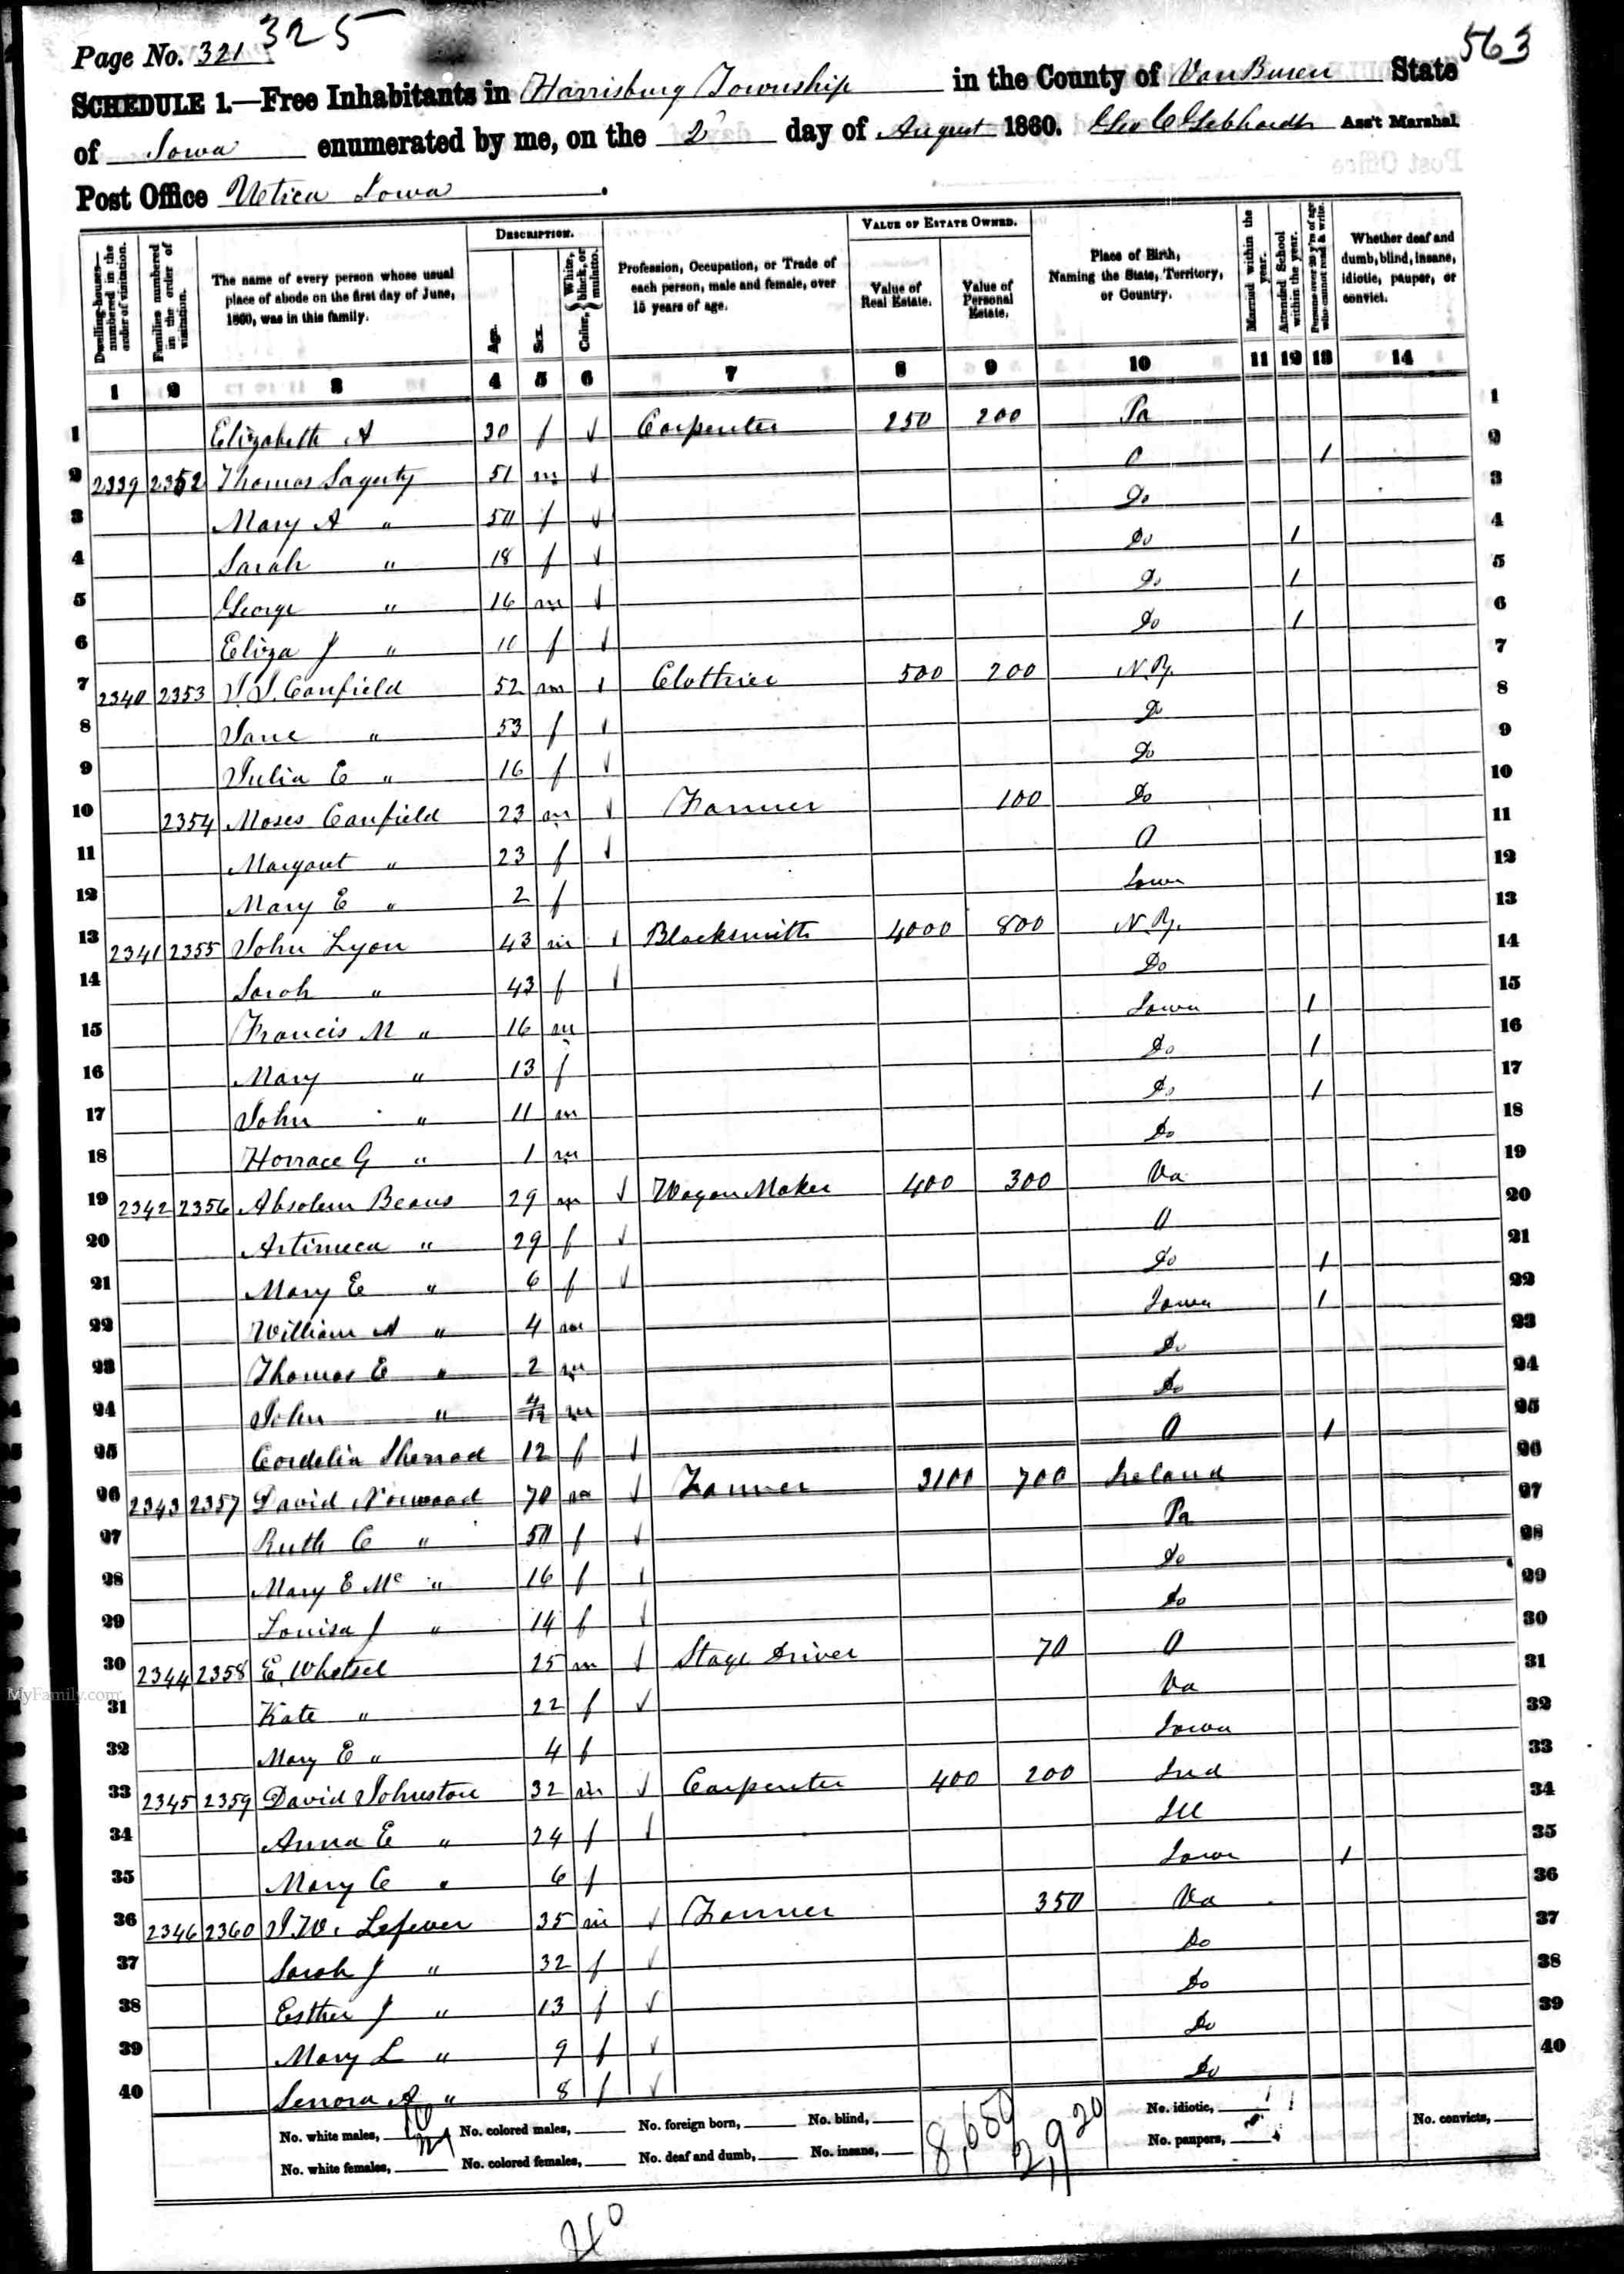 Page No. 321 325
563
SCHEDULE 1.—Free Inhabitants in Harrisburg Township in the County of Van Buren State
of Iowa enumerated by me, on the 2 day of August 1860. Geo C Gebhardt Ass't Marshal
Post Office Utica Iowa.
Dwelling-houses—numbered in the order of visitation. Families numbered in the order of visitation. The name of every person whose usual place of abode on the first day of June, 1860, was in this family. DESCRIPTION. Age. Sex. Color, White, black, or mulatto. Profession, Occupation, or Trade of each person, male and female, over 15 years of age. VALUE OF ESTATE OWNED. Value of Real Estate. Value of Personal Estate. Place of Birth, Naming the State, Territory, or Country. Married within the year. Attended School within the year. Persons over 20 y'rs of age who cannot read & write. Whether deaf and dumb, blind, insane, idiotic, pauper, or convict.
1 2 3 4 5 6 7 8 9 10 11 12 13 14
1 Elizabeth A 30 f Carpenter 250 200 Pa 1
2 2339 2352 Thomas 51 m O 1 2
3 Mary A " 50 f Do 3
4 Sarah " 18 f Do 1 4
5 George " 16 m Do 1 5
6 Eliza J " 10 f Do 1 6
7 2340 2353 Canfield 52 m Clothier 500 200 N.Y. 7
8 Jane " 53 f Do 8
9 Julia E " 16 f Do 9
10 2354 Moses Canfield 23 m Farmer 100 Do 10
11 Margaret " 23 f O 11
12 Mary E " 2 f Iowa 12
13 2341 2355 John Lyon 43 m Blacksmith 4000 800 N.Y. 13
14 Sarah " 43 f Do 14
15 Francis M " 16 m Iowa 1 15
16 Mary " 13 f Do 1 16
17 John " 11 m Do 1 17
18 Horrace G " 1 m Do 18
19 2342 2356 Absolem Beans 29 m Wagon Maker 400 300 Va 19
20 Artimeca " 29 f O 20
21 Mary E " 6 f Do 1 21
22 William A " 4 m Iowa 1 22
23 Thomas E " 2 m Do 23
24 John " 4/12 m Do 24
25 Cordelia Sherrod 12 f O 1 25
26 2343 2357 David Norwood 70 m Farmer 3100 700 Ireland 26
27 Ruth C " 50 f Pa 27
28 Mary E Mc " 16 f Do 28
29 Louisa J " 14 f Do 29
30 2344 2358 E. Whetsel 25 m Stage Driver 70 O 30
31 Kate " 22 f Va 31
32 Mary E " 4 f Iowa 32
33 2345 2359 David Johnston 32 m Carpenter 400 200 Ind 33
34 Anna E " 24 f Ill 34
35 Mary C " 6 f Iowa 1 35
36 2346 2360 J.W. Lefever 35 m Farmer 350 Va 36
37 Sarah J " 32 f Do 37
38 Esther J " 13 f Do 38
39 Mary L " 9 f Do 39
40 Senora A " 8 f Do 40
No. white males, No. colored males, No. foreign born, No. blind, 8,650 2,920 No. idiotic, No. convicts,
No. white females, No. colored females, No. deaf and dumb, No. insane, No. paupers,
40
MyFamily.com